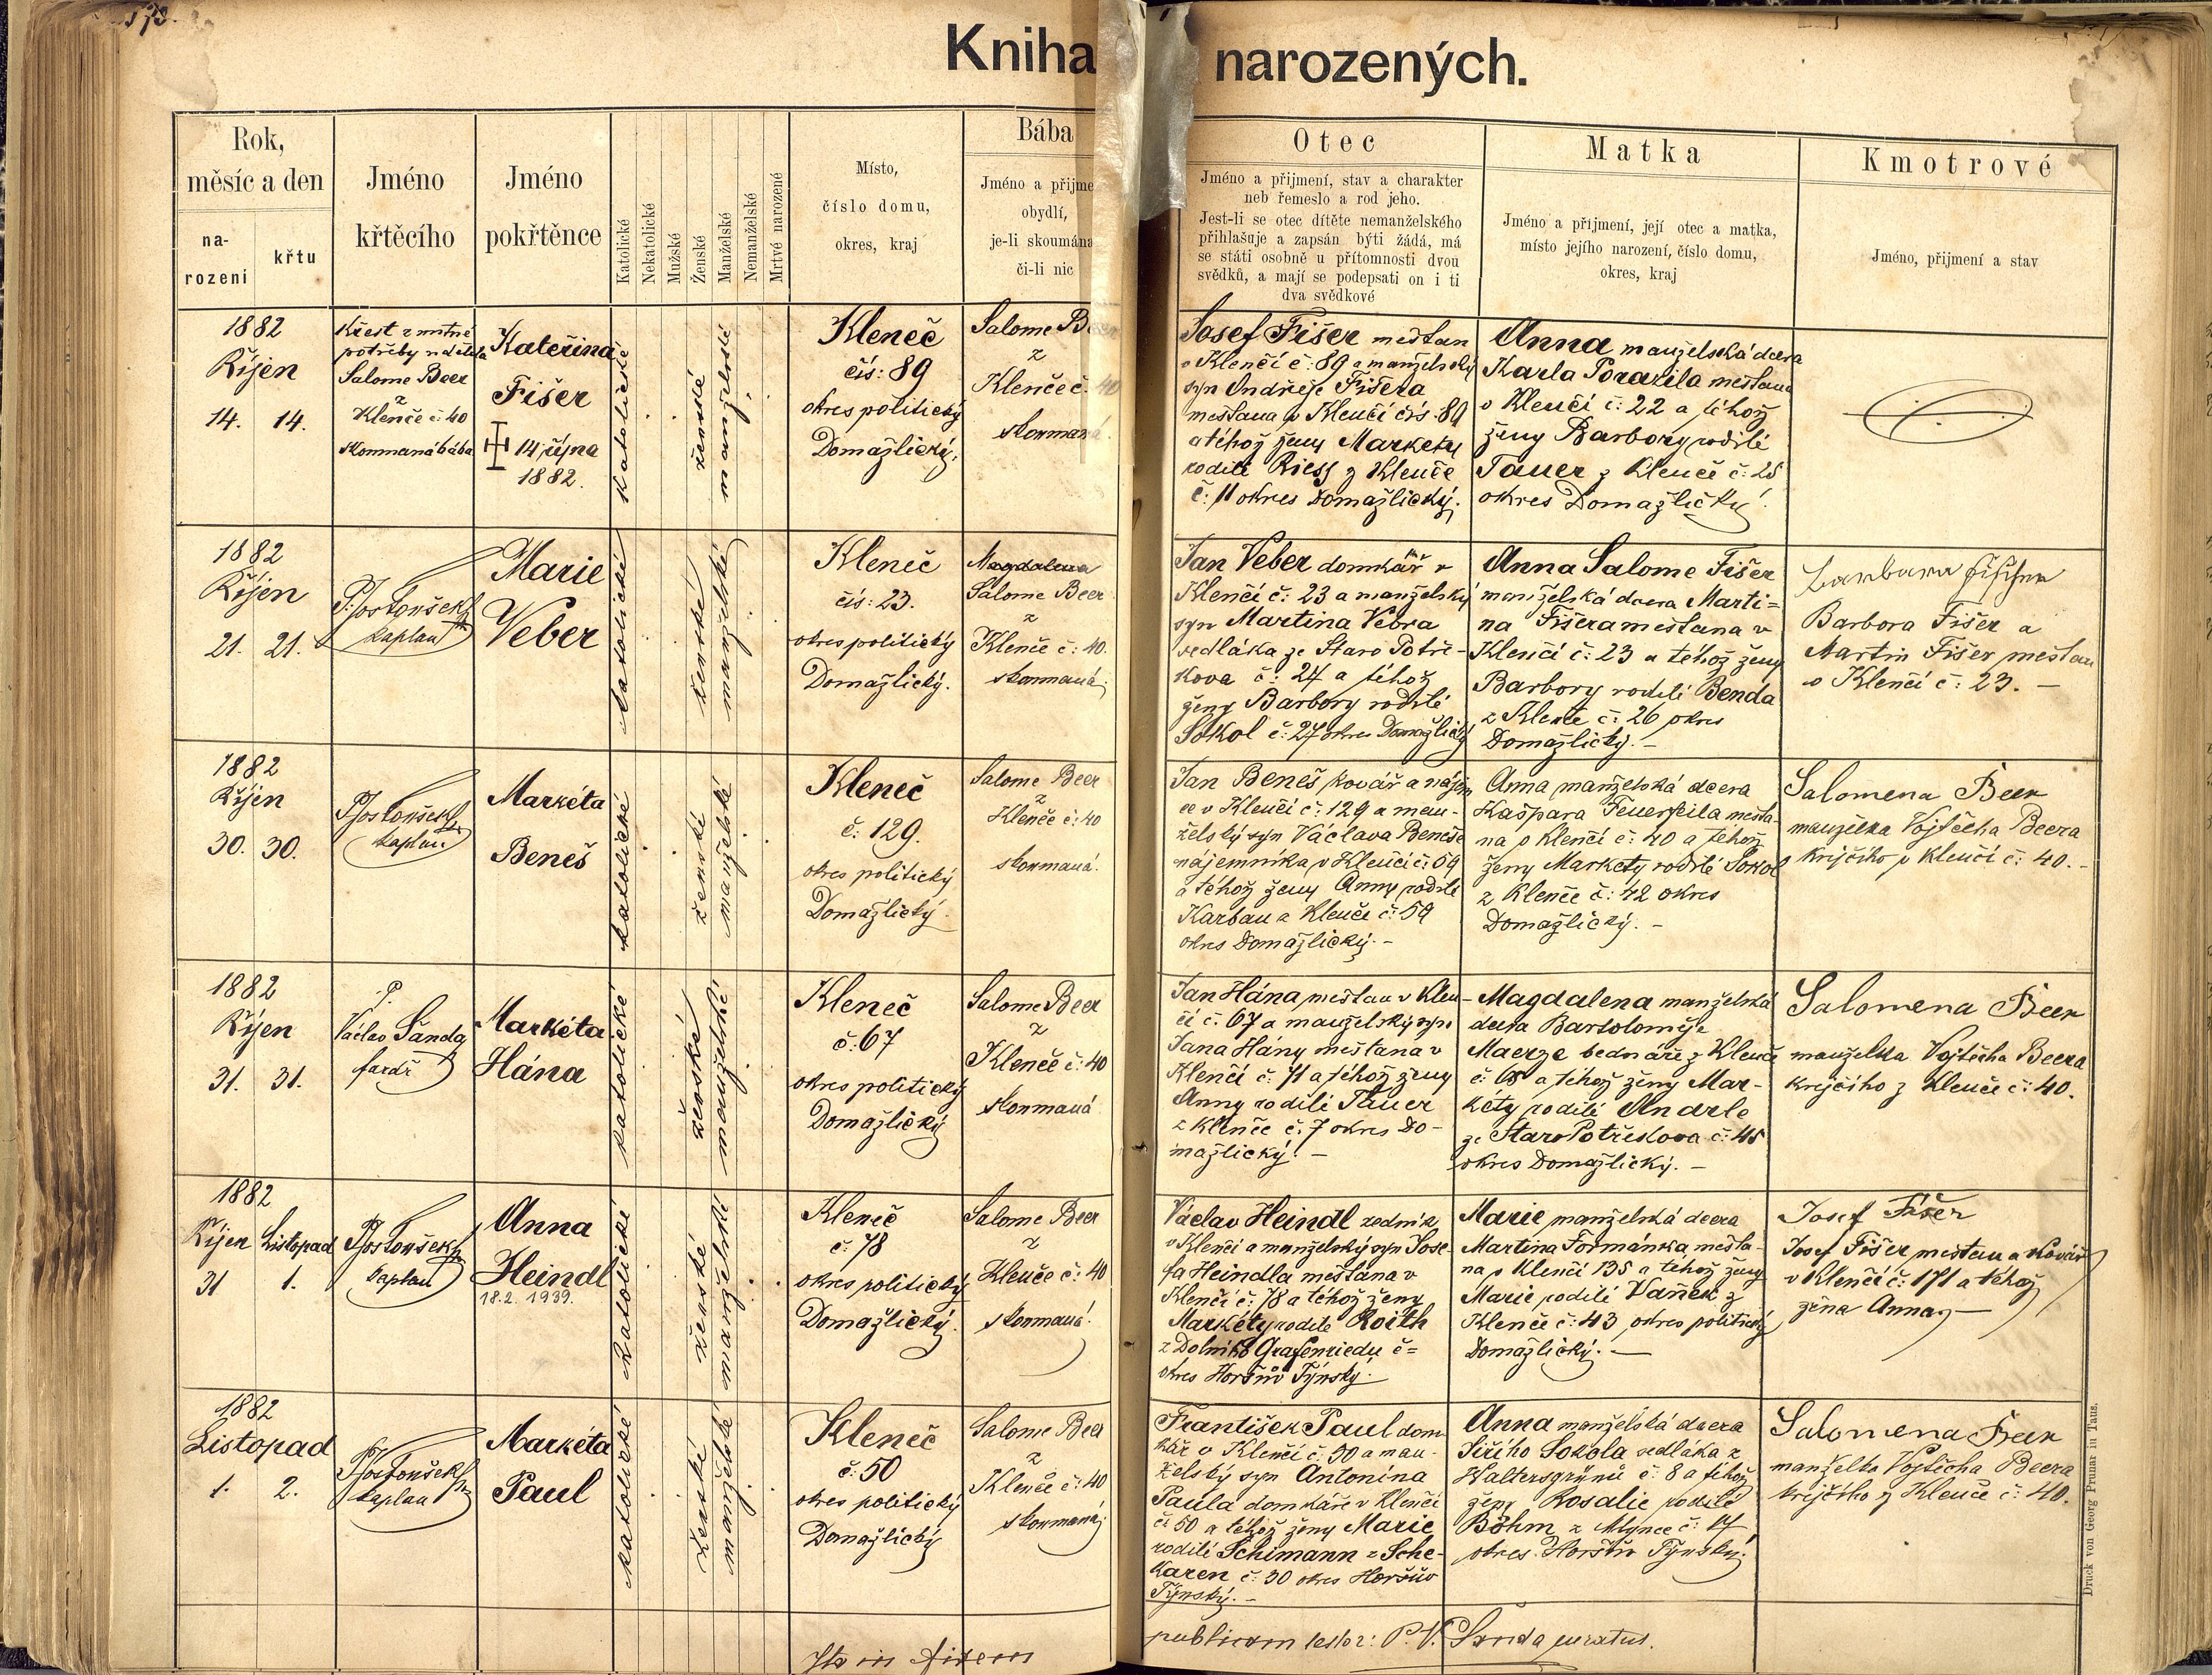 Kniha narozených.
Rok,
měsíc a den
na-
rozeni
křtu
Jméno
křtěcího
Jméno
pokřtěnce
Katolické
Nekatolické
Mužské
Ženské
Manželské
Nemanželské
Mrtvé narozené
Místo,
číslo domu,
okres, kraj
Bába
Jméno a přijme
obydlí,
je-li skoumána
či-li nic
Otec
Jméno a přijmení, stav a charakter
neb řemeslo a rod jeho.
Jest-li se otec dítěte nemanželského
přihlašuje a zapsán býti žádá, má
se státi osobně u přítomnosti dvou
svědků, a mají se podepsati on i ti
dva svědkové
Matka
Jméno a přijmení, její otec a matka,
místo jejího narození, číslo domu,
okres, kraj
Kmotrové
Jméno, přijmení a stav
1882
Říjen
14. 14.
Křest z nutné
potřeby udělila
Salome Beer
z
Klenče č: 40
skoumaná bába
Kateřina
Fišer
14 října
1882.
katolické
ženské
manželské
Kleneč
čís: 89
okres politický
Domažlický.
Salome Beer
z
Klenče č. 40
skoumaná.
Josef Fišer mešťan
v Klenčí č: 89 a manželský
syn Ondřeje Fišera
mešťana v Klenčí čís. 89
a téhož ženy Markety
rodilé Riess z Klenče
č: 11 okres Domažlický.
Anna manželská dcera
Karla Porazila mešťana
v Klenčí č: 22 a téhož
ženy Barbory rodilé
Tauer z Klenče č: 25
okres Domažlický.
1882
Říjen
21. 21.
P. Jos Tonšek
kaplan
Marie
Veber
katolické
ženské
manželské
Kleneč
čís: 23.
okres politický
Domažlický.
Magdalena
Salome Beer
z
Klenče č: 40.
skoumaná
Jan Veber domkář v
Klenčí č: 23 a manželský
syn Martina Vebra
sedláka ze Staro Potře-
kova č: 24 a téhož
ženy Barbory rodilé
Sokol č: 27 okres Domažlický
Anna Salome Fišer
manželská dcera Marti=
na Fišera mešťana v
Klenčí č: 23 a téhož ženy
Barbory rodilé Benda
z Klenče č: 26 okres
Domažlický. -
Barbara Fischer
Barbora Fišer a
Martin Fišer mešťan
v Klenčí č: 23. -
1882
Říjen
30. 30.
P. Jos Tonšek
kaplan
Markéta
Beneš
katolické
ženské
manželské
Kleneč
č: 129.
okres politický
Domažlický.
Salome Beer
z
Klenče č: 40
skoumaná.
Jan Beneš kovář a nájem
ce v Klenčí č: 129 a man-
želský syn Václava Beneše
nájemníka v Klenčí č: 59
a téhož ženy Anny rodilé
Karban z Klenče č: 59
okres Domažlický. -
Anna manželská dcera
Kašpara Feuerfeila mešťa-
na v Klenčí č: 40 a téhož
ženy Markety rodilé Sokol
z Klenče č: 42 okres
Domažlický. -
Salomena Beer
manželka Vojtěcha Beera
krejčího v Klenčí č: 40. -
1882
Říjen
31. 31.
P.
Václav Šanda
farář
Markéta
Hána
katolické
ženské
manželské
Kleneč
č: 67
okres politický
Domažlický
Salome Beer
z
Klenče č: 40
skoumaná
Jan Hána mešťan v Klen-
čí č. 67 a manželský syn
Jana Hány mešťana v
Klenčí č: 71 a téhož ženy
Anny rodilé Tauer
z Klenče č: 7 okres Do-
mažlický. -
Magdalena manželská
dcera Bartoloměje
Maerze bednáře z Klenče
č: 68 a téhož ženy Mar-
kéty rodilé Andrle
ze StaroPotřekova č: 45
okres Domažlický. -
Salomena Beer
manželka Vojtěcha Beera
krejčího z Klenče č: 40.
1882
Říjen Listopad
31 1.
P. Jos Tonšek
kaplan
Anna
Heindl
18.2. 1939.
katolické
ženské
manželské
Kleneč
č: 78
okres politický
Domažlický.
Salome Beer
z
Klenče č: 40
skoumaná.
Václav Heindl zedník
v Klenčí a manželský syn Jose-
fa Heindla mešťana v
Klenčí č: 78 a téhož ženy
Markéty rodilé Roith
z Dolního Grafenriedu č=
okres Horšův Týnský.
Marie manželská dcera
Martina Formánka mešťa-
na v Klenčí 135 a téhož ženy
Marie rodilé Vaňek z
Klenče č: 43 okres politický
Domažlický. -
Josef Fišer
Josef Fišer mešťan a kovář
v Klenčí č: 171 a téhož
žena Anna, -
1882
Listopad
1. 2.
P. Jos Tonšek
kaplan
Markéta
Paul
katolické
ženské
manželské
Kleneč
č: 50
okres politický
Domažlický
Salome Beer
z
Klenče č: 40
skoumaná
František Paul dom-
kář v Klenčí č. 50 a man-
želský syn Antonína
Paula domkáře v Klenčí
č: 50 a téhož ženy Marie
rodilé Schimann z Sche-
karen č: 30 okres Horšův
Týnský. -
Anna manželská dcera
Jiřího Sokola sedláka z
Waltersgrünů č: 8 a téhož
ženy Rosalie rodilé
Böhm z Mlýnce č: 17
okres Horšův Týnský.
Salomena Beer
manželka Vojtěcha Beera
krejčího z Klenče č: 40.
publicam testor: P. V. Šanda curatus.
Druck von Georg Prunar in Taus.